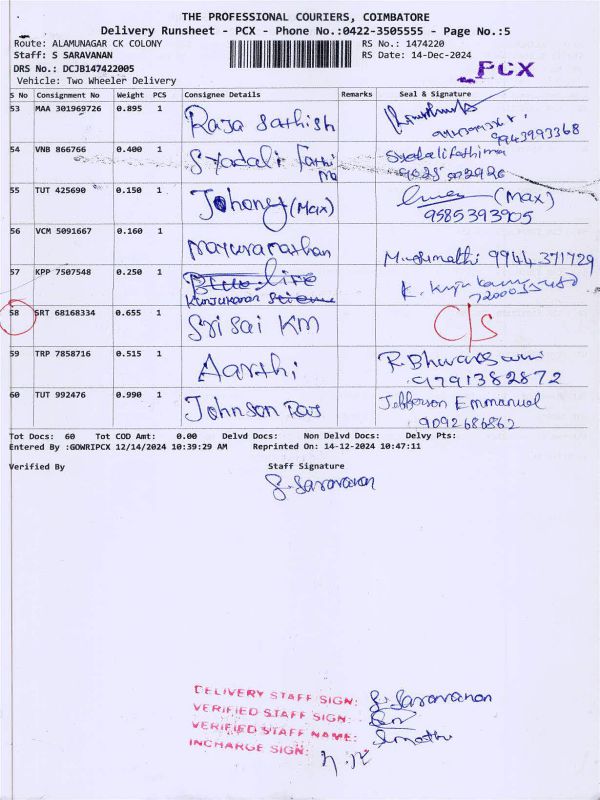 THE PROFESSIONAL COURIERS, COIMBATORE
Delivery Runsheet - PCX - Phone No.:0422-3505555 - Page No.:5
Route: ALAMUNAGAR CK COLONY RS No.: 1474220
Staff: S SARAVANAN RS Date: 14-Dec-2024
DRS No.: DCJB147422005 PCX
Vehicle: Two Wheeler Delivery
S No Consignment No Weight PCS Consignee Details Remarks Seal & Signature
53 MAA 301969726 0.895 1 Raja Sathish
9943993368
54 VNB 866766 0.400 1 Syadali Fathi ma Syadalifathima
55 TUT 425690 0.150 1 Johoney (Max) (Max)
9585393905
56 VCM 5091667 0.160 1 mayuranathan 9944371729
57 KPP 7507548 0.250 1
58 SRT 68168334 0.655 1 Sri Sai KM C/S
59 TRP 7858716 0.515 1 Aarthi
9791382872
60 TUT 992476 0.990 1 Johnson Raj Jefferson Emmanuel
9092686862
Tot Docs: 60 Tot COD Amt: 0.00 Delvd Docs: Non Delvd Docs: Delvy Pts:
Entered By :GOWRIPCX 12/14/2024 10:39:29 AM Reprinted On: 14-12-2024 10:47:11
Verified By Staff Signature
S. Saravanan
DELIVERY STAFF SIGN: S. Saravanan
VERIFIED STAFF SIGN:
VERIFIED STAFF NAME:
INCHARGE SIGN: